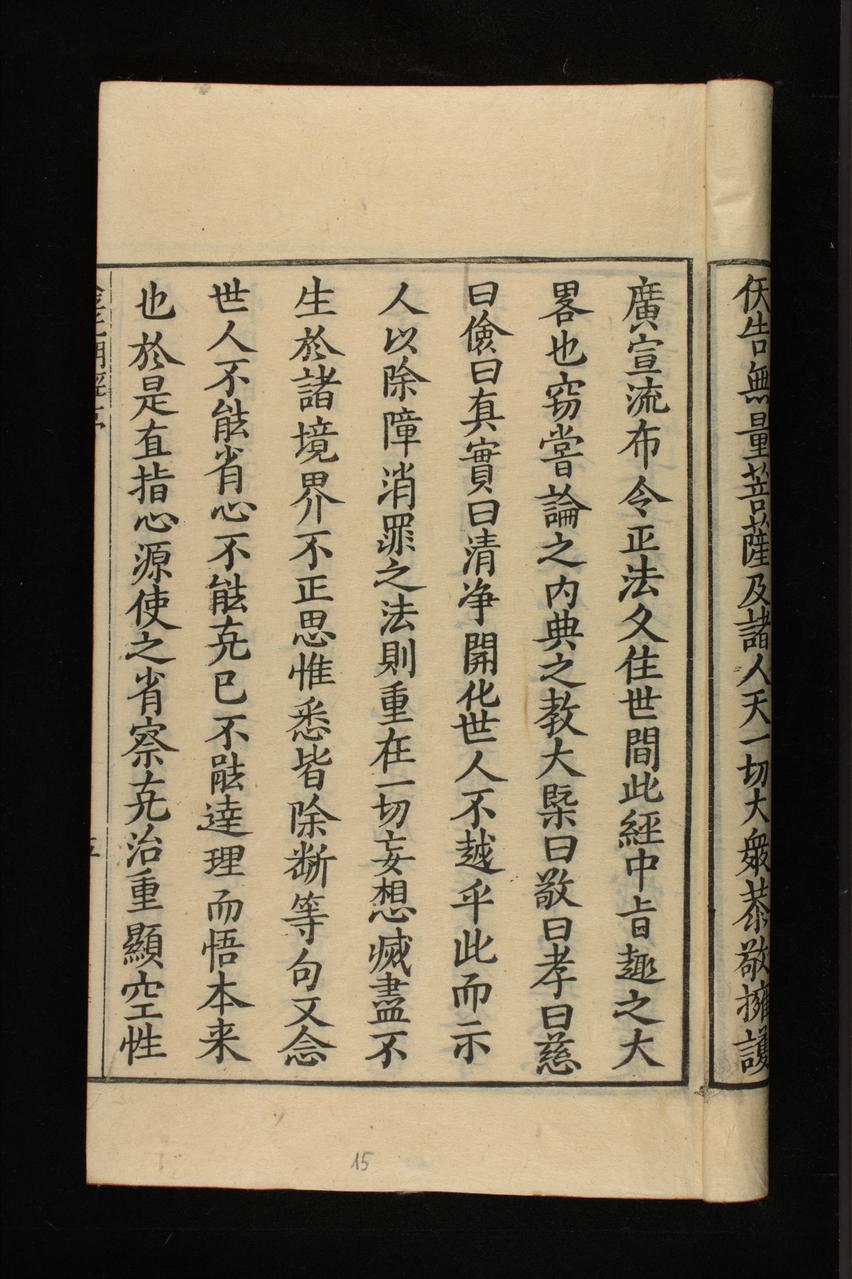 仸告無量菩薩及諸人天一切大衆恭敬擁護
廣宣流布令正法久住世間此經中旨趣之大
畧也窃嘗論之内典之教大槩曰敬曰孝曰慈
曰儉曰真實曰清净開化世人不越乎此而示
人以除障消罪之法則重在一切妄想㓕盡不
生於諸境界不正思惟悉皆除断等句又念
世人不能省心不能克己不能達理而悟本来
也於是直指心源使之省察克治重顯空性
15